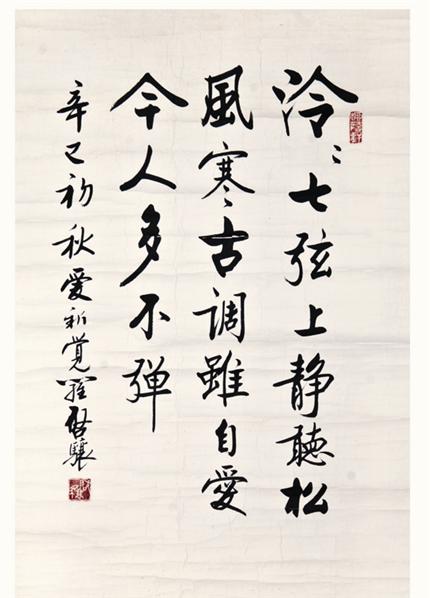 泠〻七弦上静聽松
風寒古調雖自愛
今人多不弹
辛巳初秋愛新覺羅啓驤